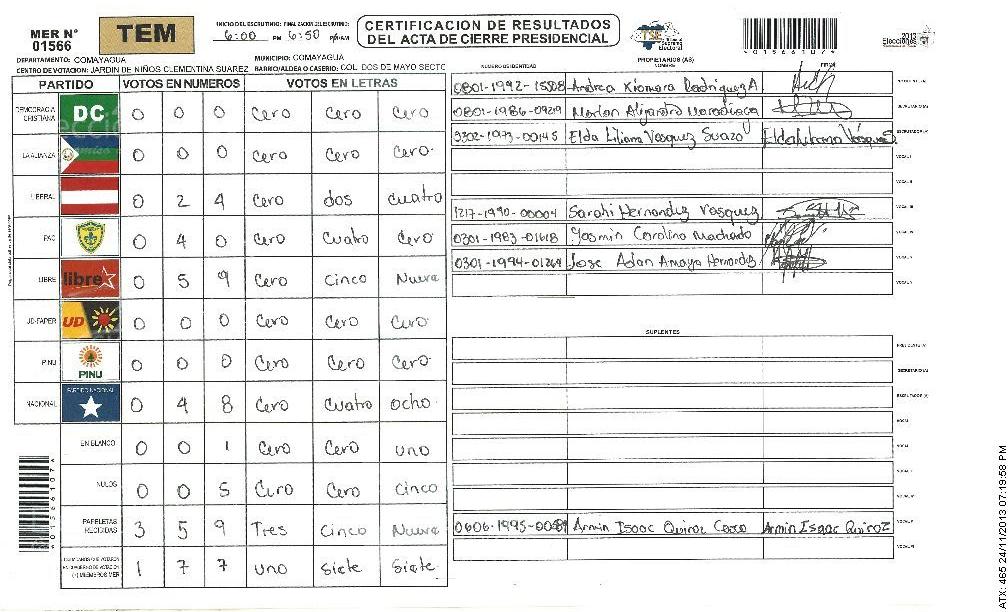 MER N° 01566
TEM
INICIO DEL ESCRUTINIO: FINALIZACION DEL ESCRUTINIO:
6:00 PM 6:50 PM
CERTIFICACION DE RESULTADOS
DEL ACTA DE CIERRE PRESIDENCIAL
TSE Tribunal Supremo Electoral
2013
Elecciones
DEPARTAMENTO: COMAYAGUA MUNICIPIO: COMAYAGUA
CENTRO DE VOTACION: JARDIN DE NIÑOS CLEMENTINA SUAREZ BARRIO/ALDEA O CASERIO: COL. DOS DE MAYO SECTO
PARTIDO VOTOS EN NUMEROS VOTOS EN LETRAS
DEMOCRACIA CRISTIANA DC 0 0 0 Cero Cero Cero
LA ALIANZA 0 0 0 Cero Cero Cero
LIBERAL 0 2 4 Cero dos cuatro
PAC 0 4 0 Cero Cuatro Cero
LIBRE libre 0 5 9 Cero Cinco Nueve
UD-FAPER UD 0 0 0 Cero Cero Cero
PINU PINU 0 0 0 Cero Cero Cero
NACIONAL PARTIDO NACIONAL 0 4 8 Cero Cuatro ocho
EN BLANCO 0 0 1 Cero Cero uno
NULOS 0 0 5 Cero Cero Cinco
PAPELETAS RECIBIDAS 3 5 9 Tres Cinco Nueve
CIUDADANOS QUE VOTARON EN CUADERNO DE VOTACION (+) MIEMBROS MER 1 7 7 uno Siete Siete
PROPIETARIOS (AS)
NUMERO IDENTIDAD NOMBRE FIRMA
0801-1992-15508 Andrea Xiomara Rodriguez A PRESIDENTE (A)
0801-1986-0929 Marlon Alijandro Maradiaga SECRETARIO (A)
0302-1973-00145 Elda Liliana Vasquez Suazo Elda Liliana Vásquez S. ESCRUTADOR (A)
VOCAL I
VOCAL II
1217-1990-00004 Sarahi Hernandez Vasquez VOCAL III
0301-1983-01618 Yasmin Carolina Machado VOCAL IV
0301-1994-01264 Jose Adan Amaya Hernandez VOCAL V
VOCAL VI
SUPLENTES
PRESIDENTE (A)
SECRETARIO (A)
ESCRUTADOR (A)
VOCAL I
VOCAL II
VOCAL III
VOCAL IV
0606-1995-0089 Armin Isaac Quiroz Armin Isaac Quiroz VOCAL V
VOCAL VI
ATX: 465 24/11/2013 07:19:58 PM